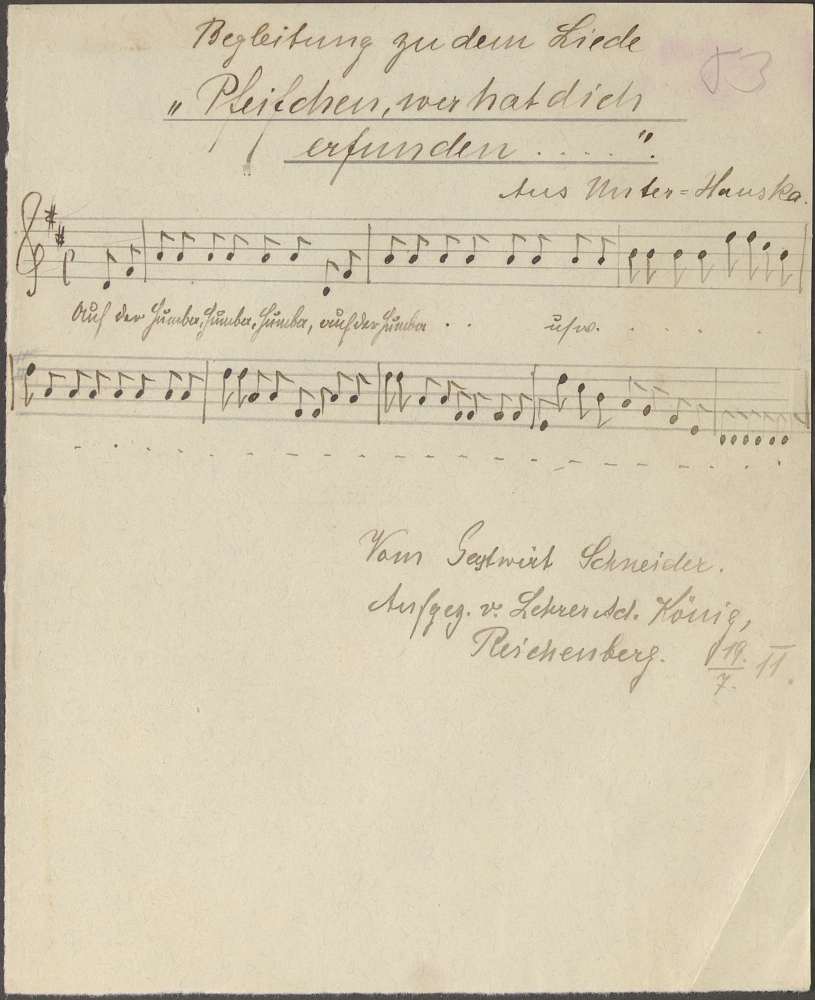 Begleitung zu dem Liede
53
„Pfeifchen, wer hat dich
erfunden . . . . ".
Aus Unter=Hauska.
Auf der Humba, Humba, Humba, auf der Humba . . usw. . . . .
Vom Gastwirt Schneider.
Aufgez. v. Lehrer Ad. König,
Reichenberg. 19./7. 11.